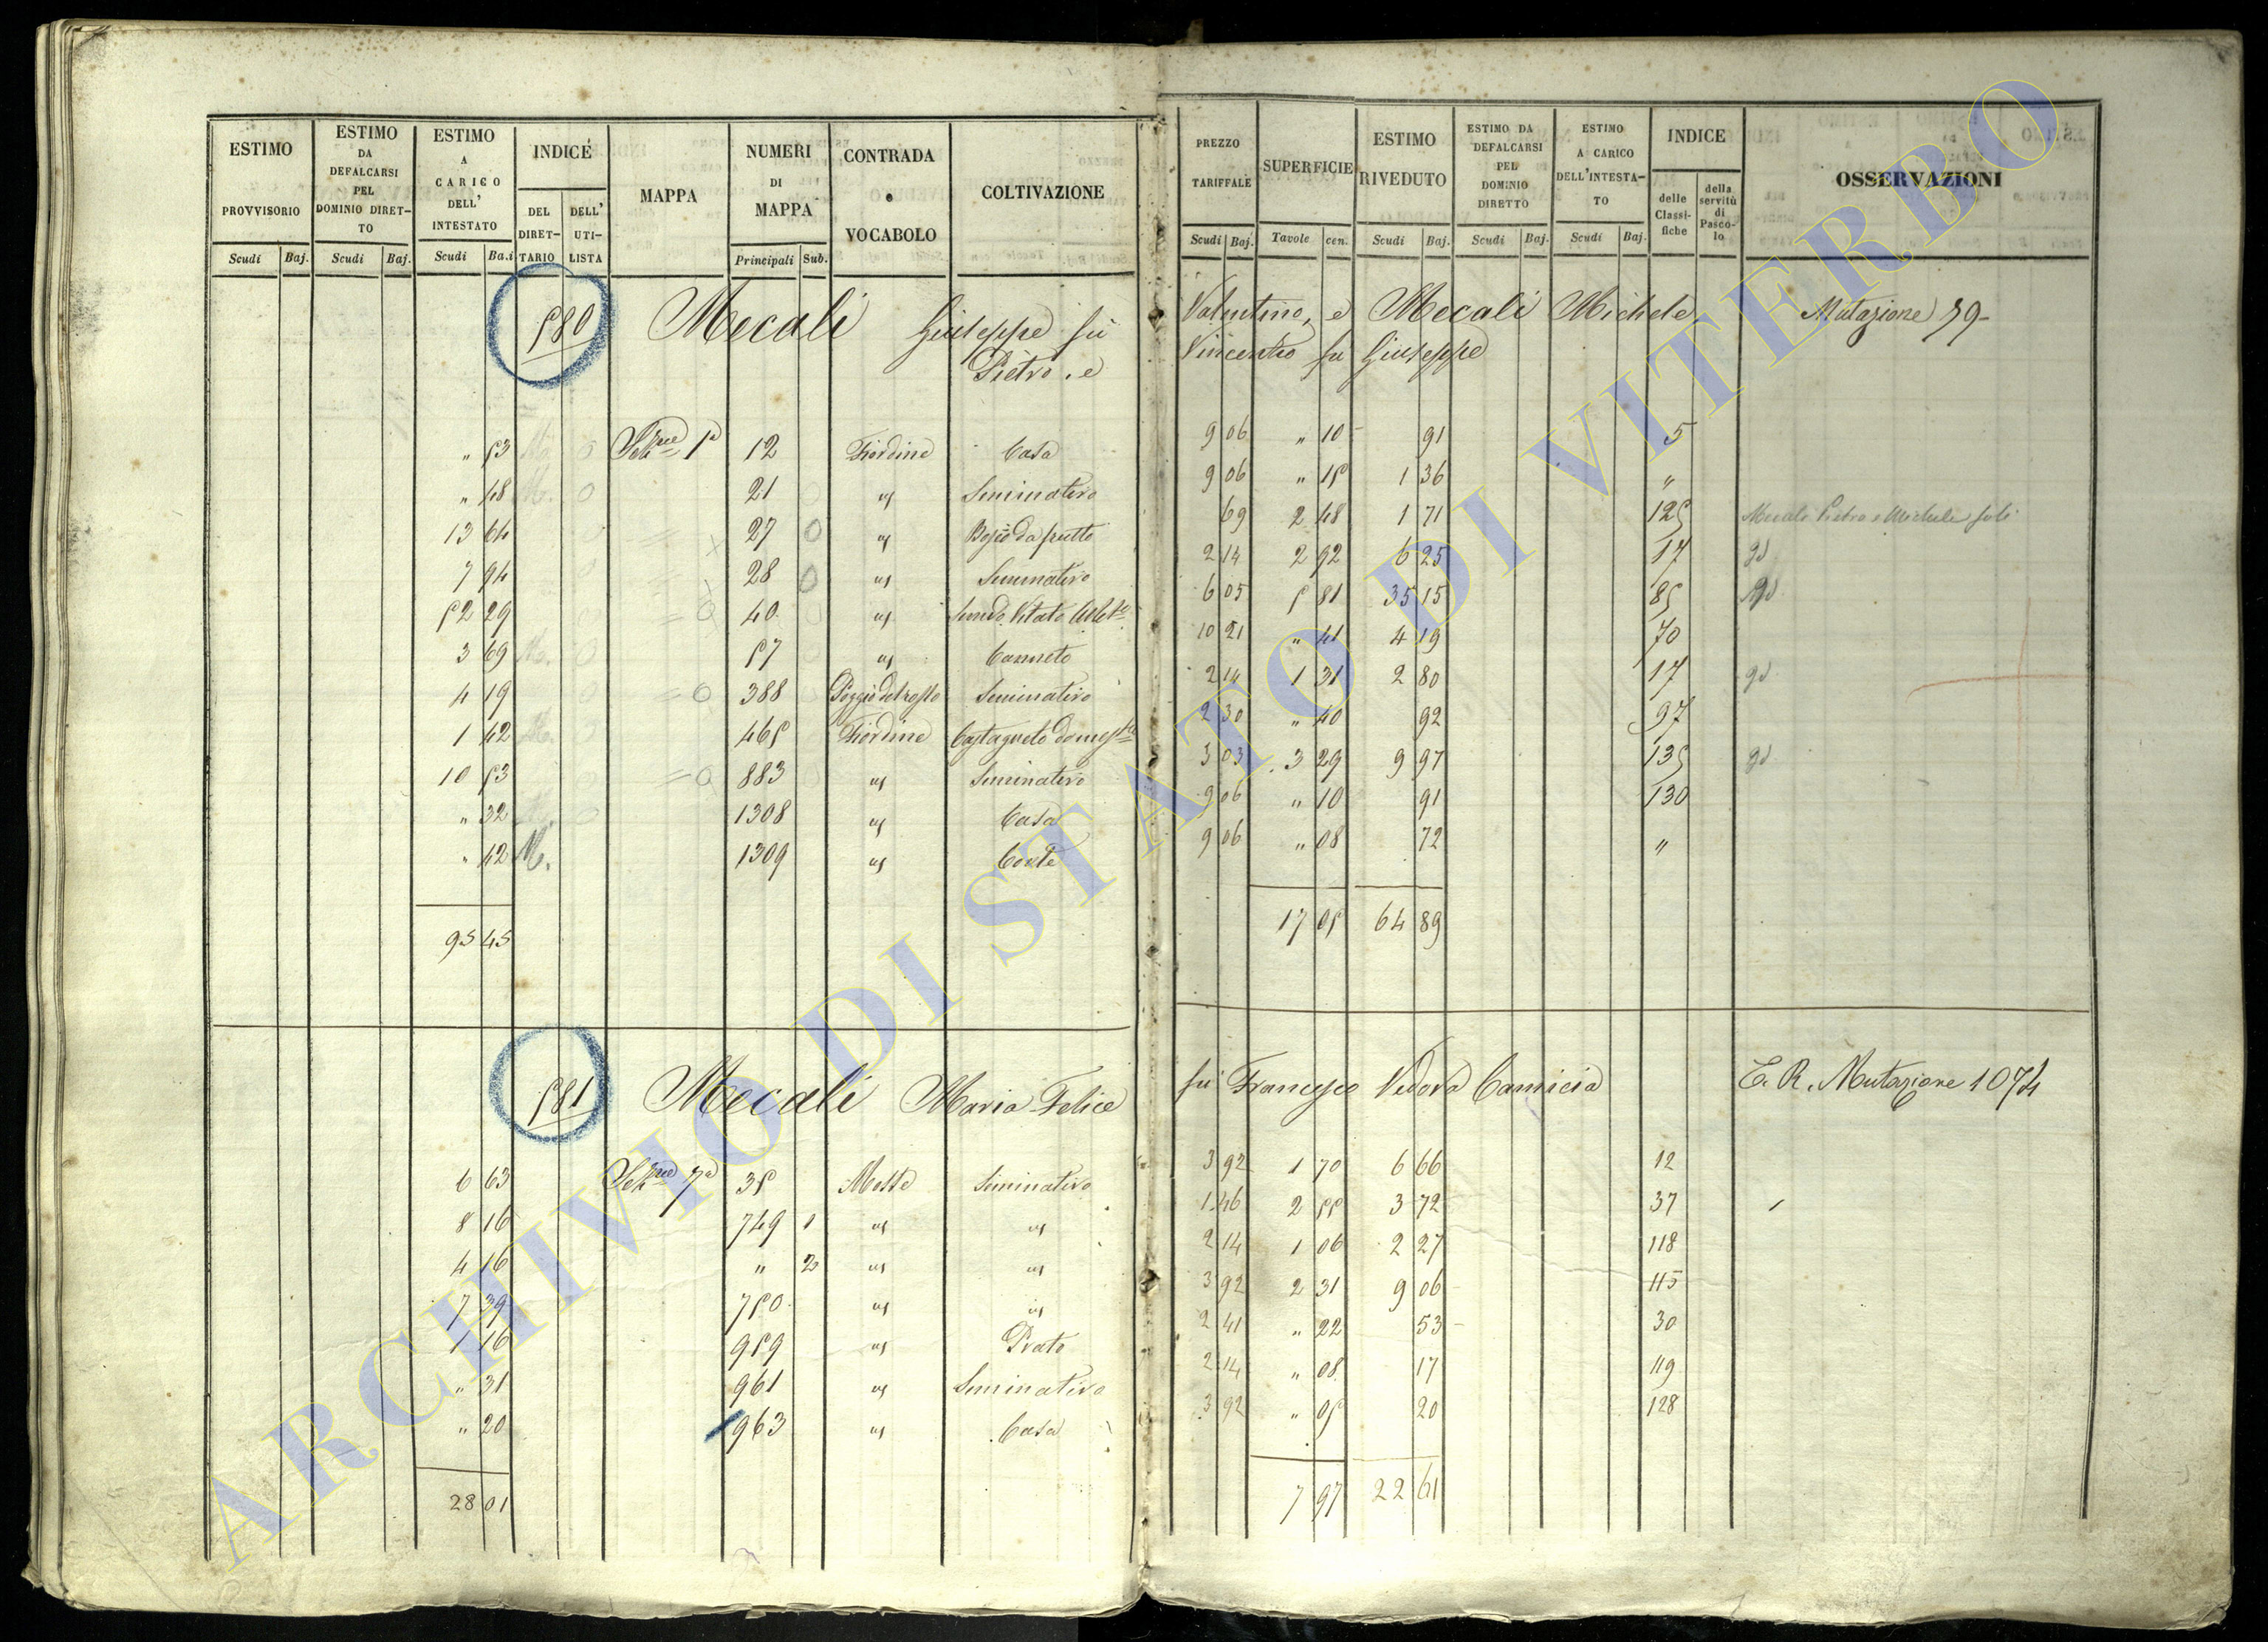 ESTIMO PROVVISORIO | ESTIMO DA DEFALCARSI PEL DOMINIO DIRETTO | ESTIMO A CARICO DELL' INTESTATO | INDICE | MAPPA | NUMERI DI MAPPA | CONTRADA e VOCABOLO | COLTIVAZIONE | PREZZO TARIFFALE | SUPERFICIE | ESTIMO RIVEDUTO | ESTIMO DA DEFALCARSI PEL DOMINIO DIRETTO | ESTIMO A CARICO DELL'INTESTATO | INDICE | OSSERVAZIONI
Scudi | Baj. | Scudi | Baj. | Scudi | Baj | DEL DIRETTARIO | DELL' UTILISTA | Principali | Sub. | Scudi | Baj. | Tavole | cen. | Scudi | Baj. | Scudi | Baj. | Scudi | Baj. | delle Classifiche | della servitù di Pascolo
580 Mecali Giuseppe fu Pietro, e Valentino, e Mecali Michele, Vincentio fu Giuseppe Mutazione 59
" 53 | Sezne 1a | 12 | Fiordine | Casa | 9 06 | " 10 | 91 | 5
" 48 | 21 | " | Seminativo | 9 06 | " 15 | 1 36 | "
13 64 | 27 | " | da frutto | 69 | 2 48 | 1 71 | 125 | Mecali Pietro e Michele soli
7 94 | 28 | " | Seminativo | 2 14 | 2 92 | 6 25 | 17
52 29 | 40 | " | Vitato | 6 05 | 5 81 | 35 15 | 85
3 69 | 57 | " | Canneto | 10 21 | " 41 | 4 19 | 70
4 19 | 388 | Seminativo | 2 14 | 1 31 | 2 80 | 17
1 42 | 465 | Fiordine | Castagneto domest | 2 30 | " 40 | 92 | 97
10 53 | 883 | " | Seminativo | 3 03 | 3 29 | 9 97 | 135
" 32 | 1308 | " | Casa | 9 06 | " 10 | 91 | 130
" 42 | M. | 1309 | " | Corte | 9 06 | " 08 | 72 | "
95 45 | 17 05 | 64 89
581 Mecali Maria Felice fu Francesco Vedova Camicia E. R. Mutazione 1074
6 63 | Sezne 7a | 35 | Mosse | Seminativo | 3 92 | 1 70 | 6 66 | 12
8 16 | 749 | 1 | " | " | 1 46 | 2 55 | 3 72 | 37
4 16 | " | 2 | " | " | 2 14 | 1 06 | 2 27 | 118
7 39 | 750 | " | " | 3 92 | 2 31 | 9 06 | 115
1 16 | 959 | " | Prato | 2 41 | " 22 | 53 | 30
" 31 | 961 | " | Seminativo | 2 14 | " 08 | 17 | 119
" 20 | 963 | " | Casa | 3 92 | " 05 | 20 | 128
28 01 | 7 97 | 22 61
ARCHIVIO DI STATO DI VITERBO